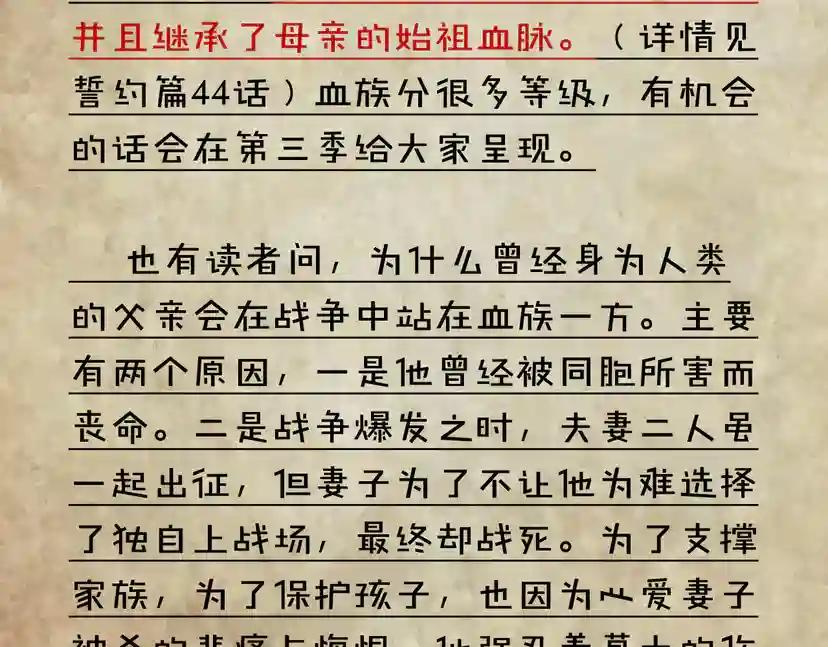 并且继承了母亲的始祖血脉。（详情见
誓约篇44话）血族分很多等级，有机会
的话会在第三季给大家呈现。
也有读者问，为什么曾经身为人类
的父亲会在战争中站在血族一方。主要
有两个原因，一是他曾经被同胞所害而
丧命。二是战争爆发之时，夫妻二人虽
一起出征，但妻子为了不让他为难选择
了独自上战场，最终却战死。为了支撑
家族，为了保护孩子，也因为心爱妻子
被杀的悲痛与悔恨，他强忍着莫大的